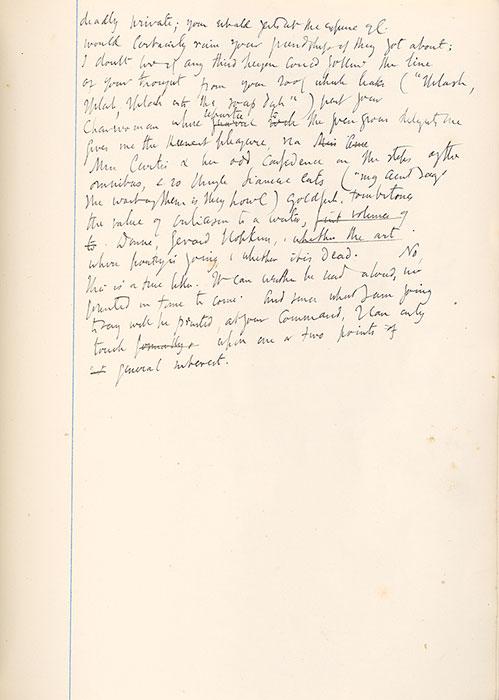 deadly private; your whole jests at the expense of
would certainly ruin your friendships if they got about;
I doubt if any third person could follow the line
of your thought from your roof which leaks ("Splash,
splash, splash into the soap dish") past your
charwoman whose the green grocer delight, me
gives me the keenest pleasure, via
Mrs Curtis & her odd confidence on the steps of the
omnibus, & so Siamese cats ("my Aunt says
the worst of them is they howl") goldfish. tombstones
the value of criticism to a writer,
to Donne, Gerard Hopkins,
where poetry is going, & whether it is dead. No,
this is a true letter. It can neither be read aloud, nor
printed in time to come. And since what I am going
to say will be printed, at your command, I can only
touch upon one or two points of
general interest.